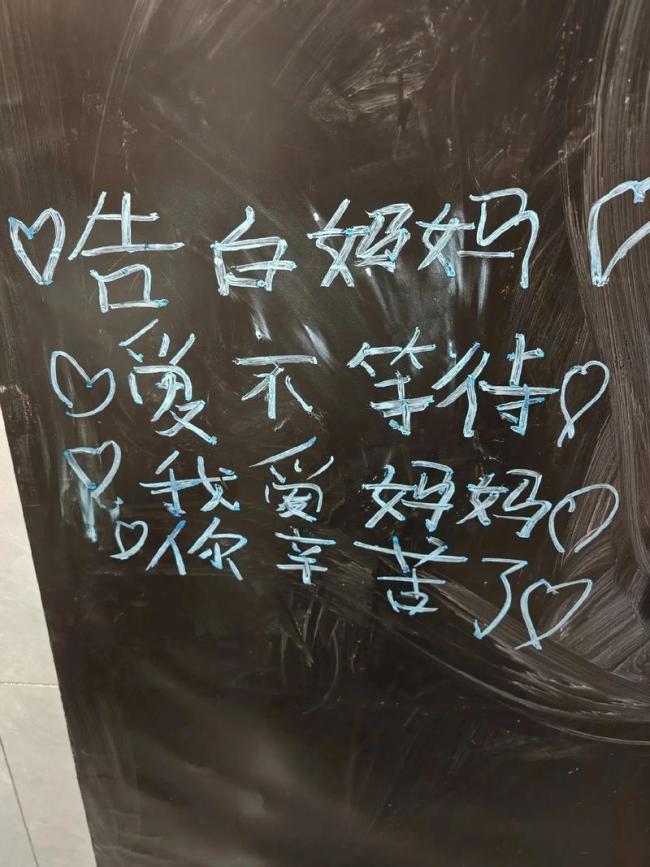 告白妈妈
爱不等待
我爱妈妈
你辛苦了